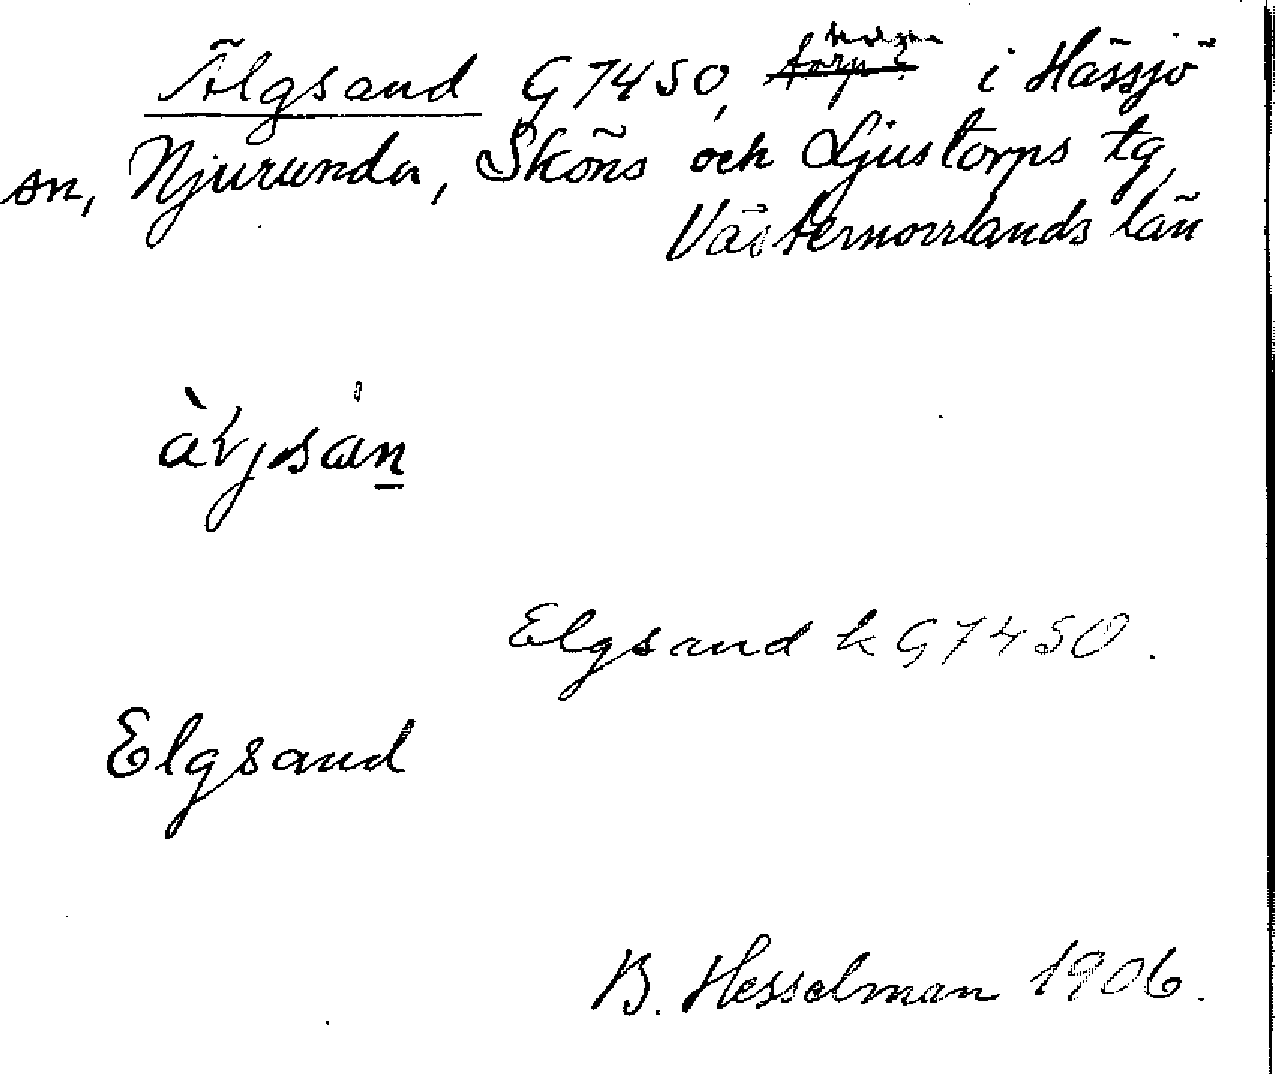 Älgsand G7450, torp? i Hässjö
sn, Njurunda, Sköns och Ljustorps tg,
Västernorrlands län
Elgsand k G7450.
Elgsand
B. Hesselman 1906.